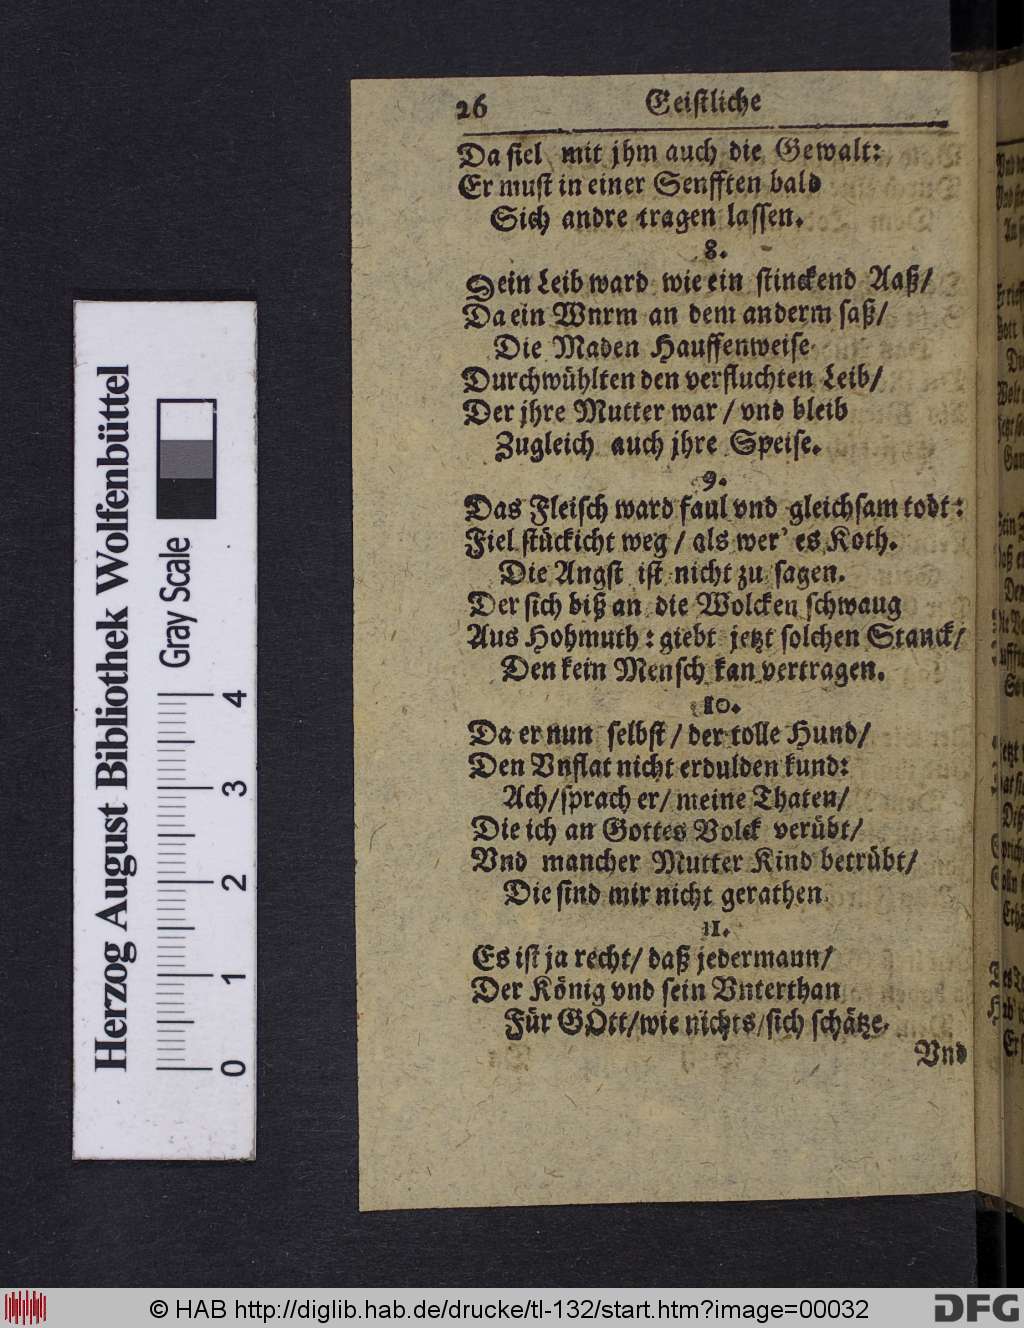 26 Geistliche
Da fiel mit jhm auch die Gewalt:
Er must in einer Senfften bald
Sich andre tragen lassen.
8.
Sein Leib ward wie ein stinckend Aaß/
Da ein Wnrm an dem anderm saß/
Die Maden Hauffenweise
Durchwühlten den verfluchten Leib/
Der jhre Mutter war / vnd bleib
Zugleich auch jhre Speise.
9.
Das Fleisch ward faul vnd gleichsam todt:
Fiel stückicht weg / als wer' es Koth.
Die Angst ist nicht zu sagen.
Der sich biß an die Wolcken schwaug
Aus Hohmuth: giebt jetzt solchen Stanck/
Den kein Mensch kan vertragen.
10.
Da er nun selbst / der tolle Hund/
Den Vnflat nicht erdulden kund:
Ach/ sprach er/ meine Thaten/
Die ich an Gottes Volck verübt/
Vnd mancher Mutter Kind betrübt/
Die sind mir nicht gerathen.
11.
Es ist ja recht/ daß jedermaun/
Der König vnd sein Vnterthan
Für GOtt/ wie nichts/ sich schätze.
Vnd
Herzog August Bibliothek Wolfenbüttel
Gray Scale
0 1 2 3 4
© HAB http://diglib.hab.de/drucke/tl-132/start.htm?image=00032
DFG